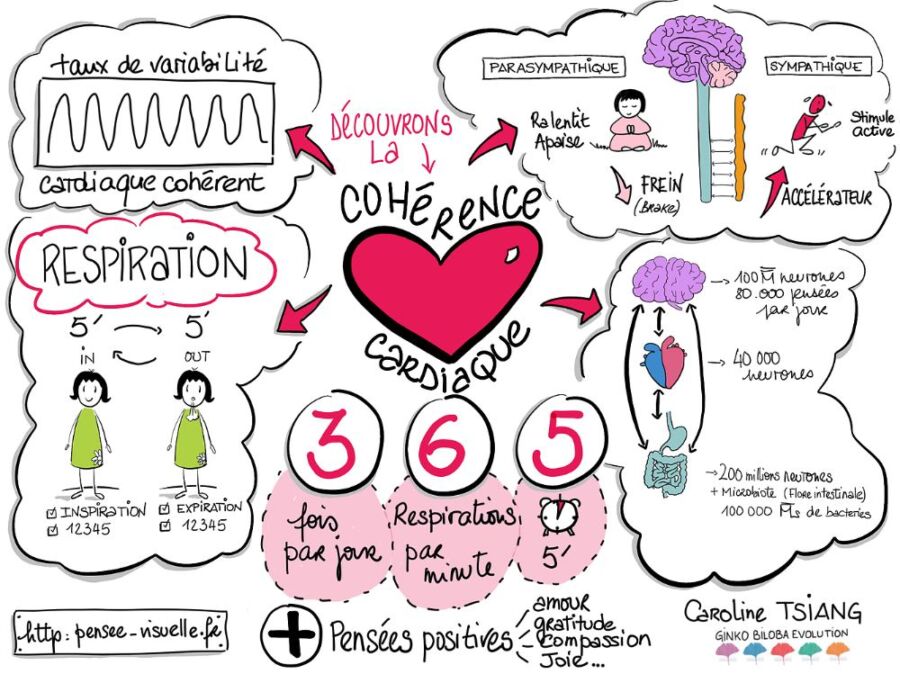 taux de variabilité
cardiaque cohérent
DÉCOUVRONS
LA
COHÉRENCE
CARDIAQUE
PARASYMPATHIQUE
SYMPATHIQUE
Ralentit
Apaise
FREIN
(BRAKE)
Stimule
active
ACCÉLÉRATEUR
RESPIRATION
5' 5'
IN OUT
INSPIRATION
12345
EXPIRATION
12345
100 M neurones
80.000 pensées
par jour
40 000
neurones
200 millions neurones
+ Microbiote (Flore intestinale)
100 000 Ms de bacteries
3 6 5
fois
par jour
Respirations
par
minute
5'
+ Pensées positives
amour
gratitude
compassion
Joie...
http: pensee-visuelle.fr
Caroline TSIANG
GINKO BILOBA EVOLUTION